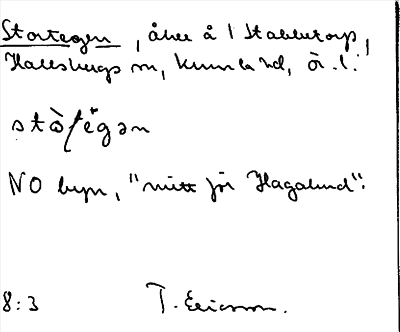 Stortegen, åker å 1 Stabbetorp,
Hallsbergs sn, Kumla hd, Ör. l.
NO byn, "mitt för Hagalund".
8:3 T. Ericsson.